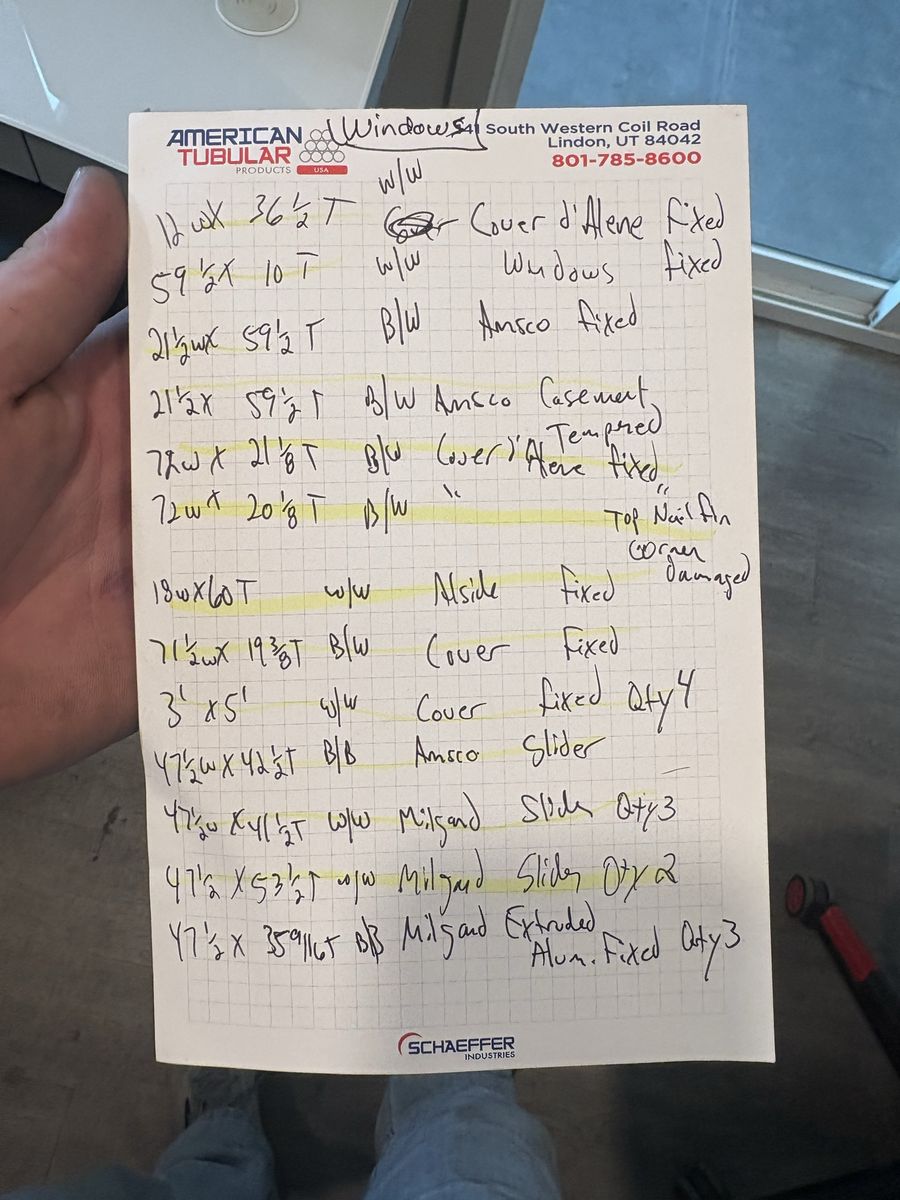 AMERICAN TUBULAR PRODUCTS USA
Windows
41 South Western Coil Road
Lindon, UT 84042
801-785-8600
12wX 36 1/2 T W/W Cover d'Alene Fixed
59 1/2 X 10 T W/W Windows fixed
21 1/2 wX 59 1/2 T B/W Amsco fixed
21 1/2 X 59 1/2 T B/W Amsco Casement
Tempered
72w X 21 1/8 T B/W Cover d'Alene fixed
72w X 20 1/8 T B/W " "
Top Nail fin
corner
damaged
18wX60T w/w Alside fixed
71 1/2 wX 19 3/8 T B/W Cover Fixed
3' x5' w/w Cover fixed Qty 4
47 1/2 w X 42 1/2 T B/B Amsco Slider
47 1/2 w X 41 1/2 T W/W Milgard Slider Qty 3
47 1/2 X 53 1/2 T w/w Milgard Slider Qty 2
47 1/2 X 35 9/16T B/B Milgard Extruded
Alum. Fixed Qty 3
SCHAEFFER
INDUSTRIES